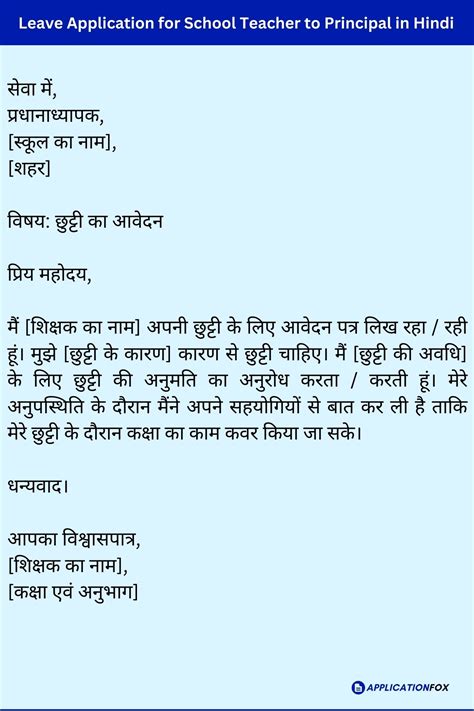 Leave Application for School Teacher to Principal in Hindi
सेवा में,
प्रधानाध्यापक,
[स्कूल का नाम],
[शहर]
विषय: छुट्टी का आवेदन
प्रिय महोदय,
मैं [शिक्षक का नाम] अपनी छुट्टी के लिए आवेदन पत्र लिख रहा / रही
हूं। मुझे [छुट्टी के कारण] कारण से छुट्टी चाहिए। मैं [छुट्टी की अवधि]
के लिए छुट्टी की अनुमति का अनुरोध करता / करती हूं। मेरे
अनुपस्थिति के दौरान मैंने अपने सहयोगियों से बात कर ली है ताकि
मेरे छुट्टी के दौरान कक्षा का काम कवर किया जा सके।
धन्यवाद।
आपका विश्वासपात्र,
[शिक्षक का नाम],
[कक्षा एवं अनुभाग]
APPLICATIONFOX